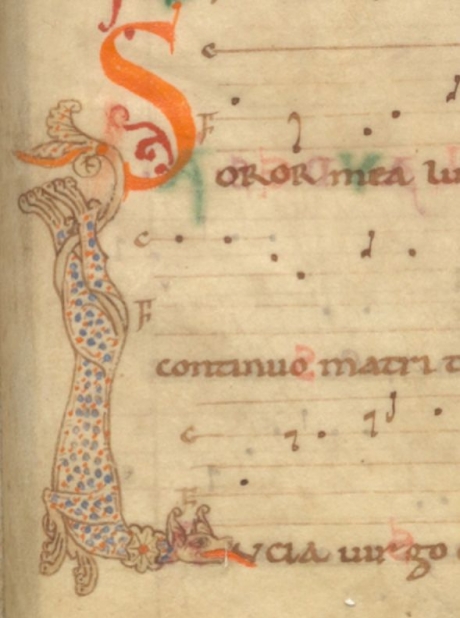 SOROR mea lu
continuo matri t
LVCIA uirgo